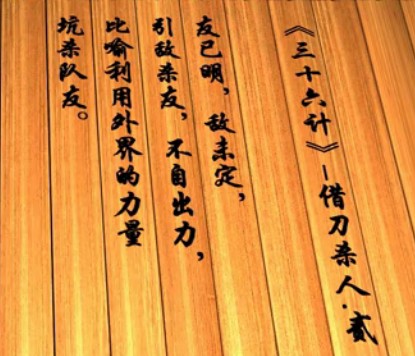 《三十六计》-借刀杀人·贰
友已明，敌未定，
引敌杀友，不自出力，
比喻利用外界的力量
坑杀队友。